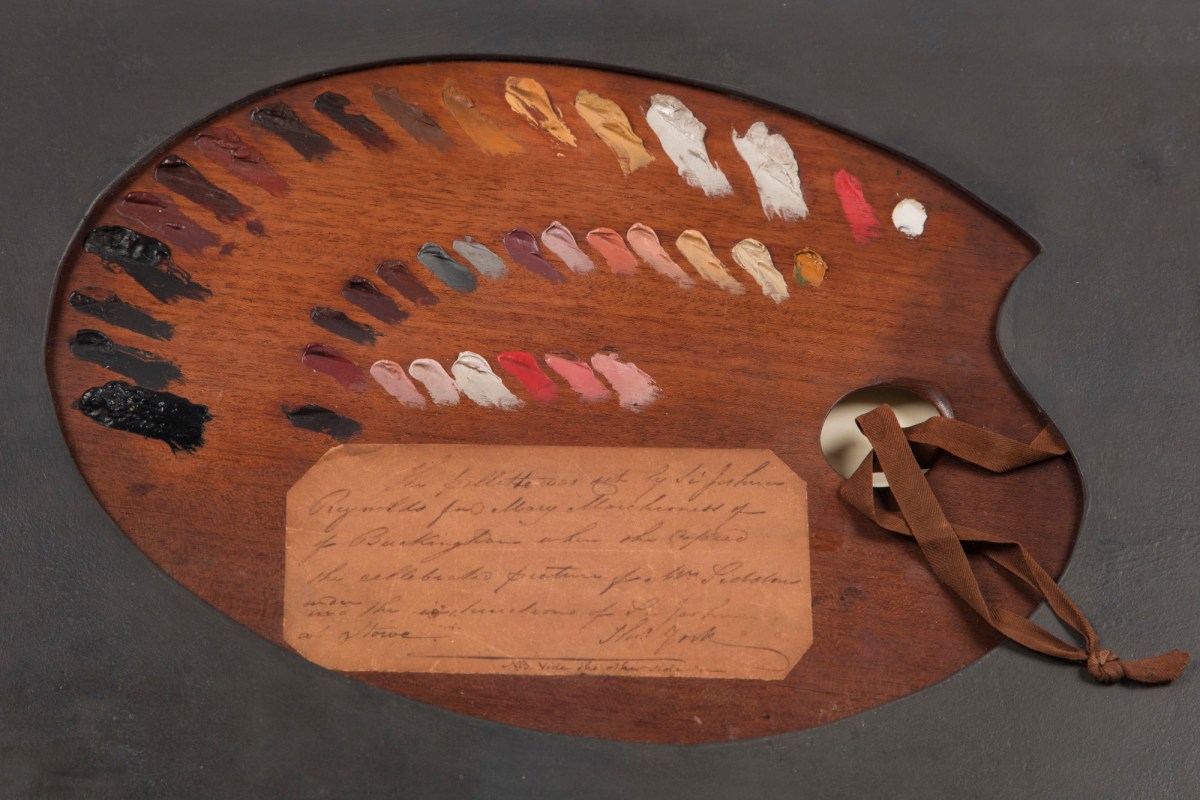 pallette was set by Sir Joshua
Reynolds for Mary Marchioness of
Buckingham when she Copied
the cellebrated picture of Mrs Siddons
under the instructions of Sir Joshua
at Stowe. Thos. York
NB. Vide the other side